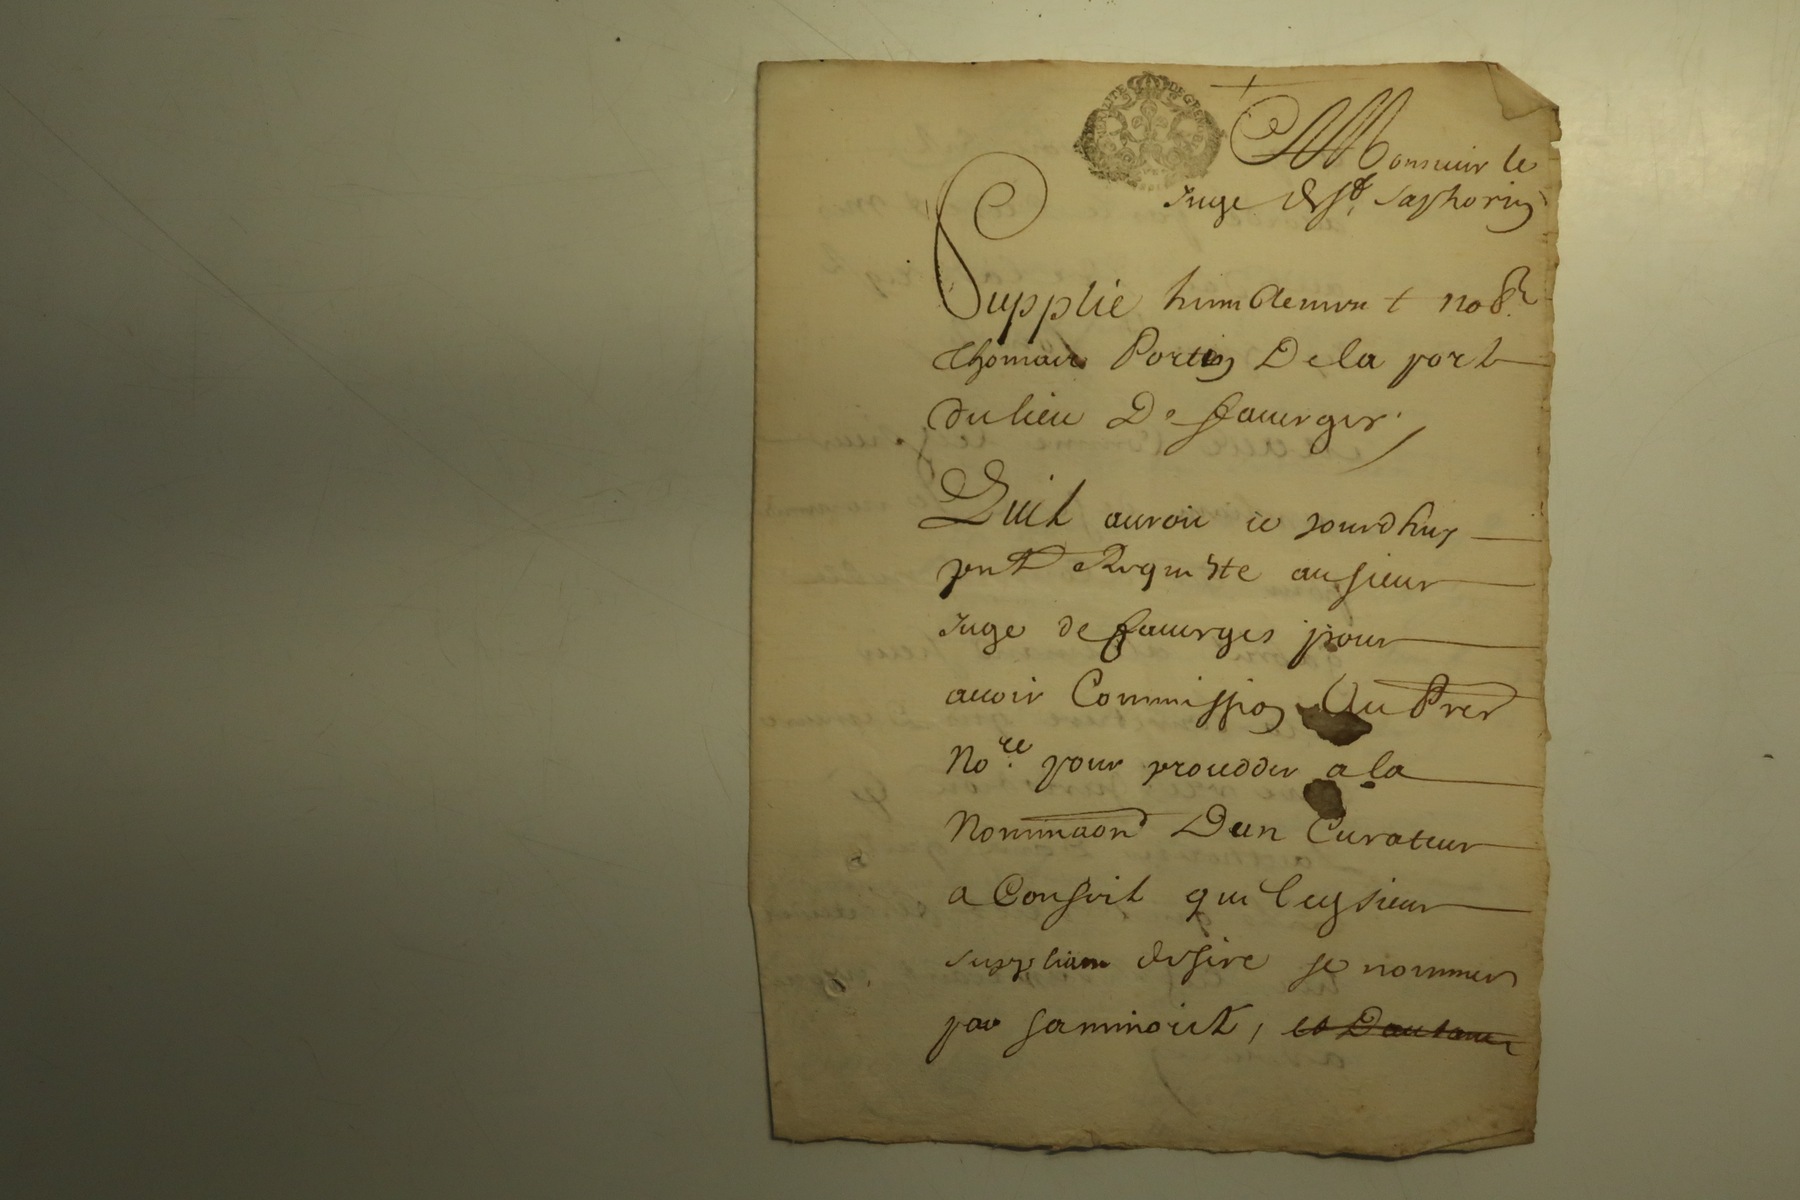 GENERALITE DE GRENOBLE
Monsieur le
Juge de st. saphorin
Supplie humblement nob.le
Thomas Portin De la porte
du lieu De faverges
Quil auroit ce jourdhuy
pnt Requeste au sieur
Juge de faverges pour
avoir Commission Au Prer
No.re pour proceder a la
Nominaon Dun Curateur
a Conseil que ledt sieur
suppliant desire se nommer
par sa minorité, et Dautant